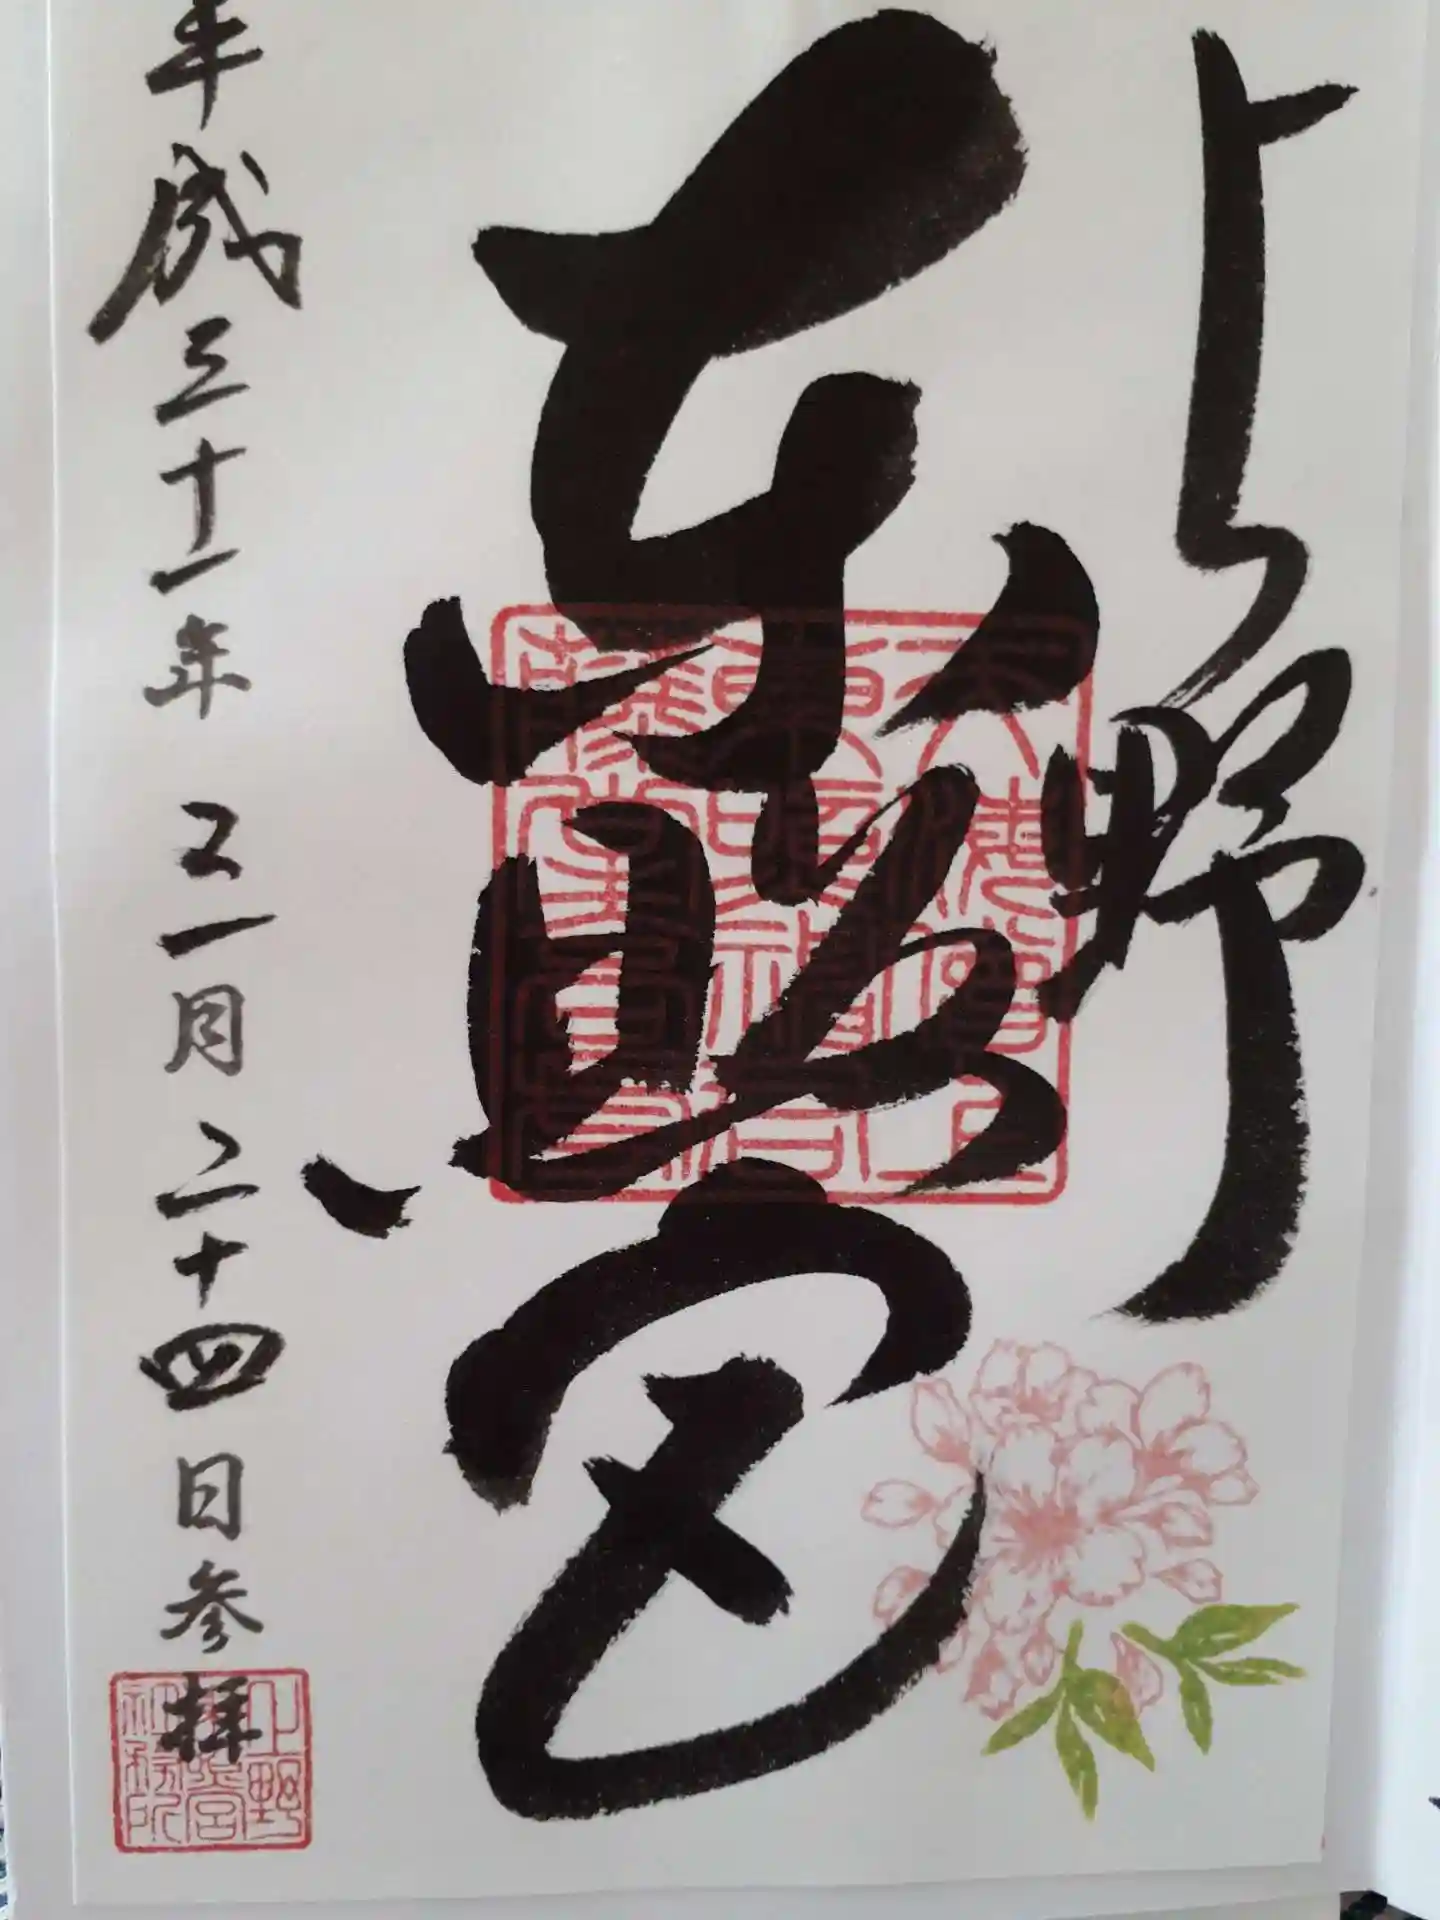 上野
東照宮
平成三十一年三月二十四日参拝
上野
東照宮
社務所